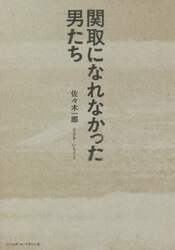 関取になれなかった
男たち
佐々木一郎